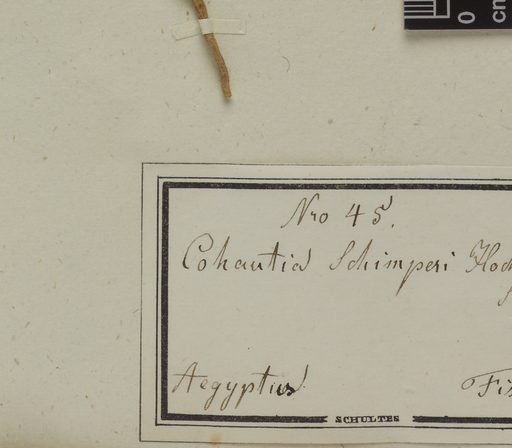 0
cm
Nro 45.
Cohautia Schimperi Hoch
Aegyptus
Fis
SCHULTES